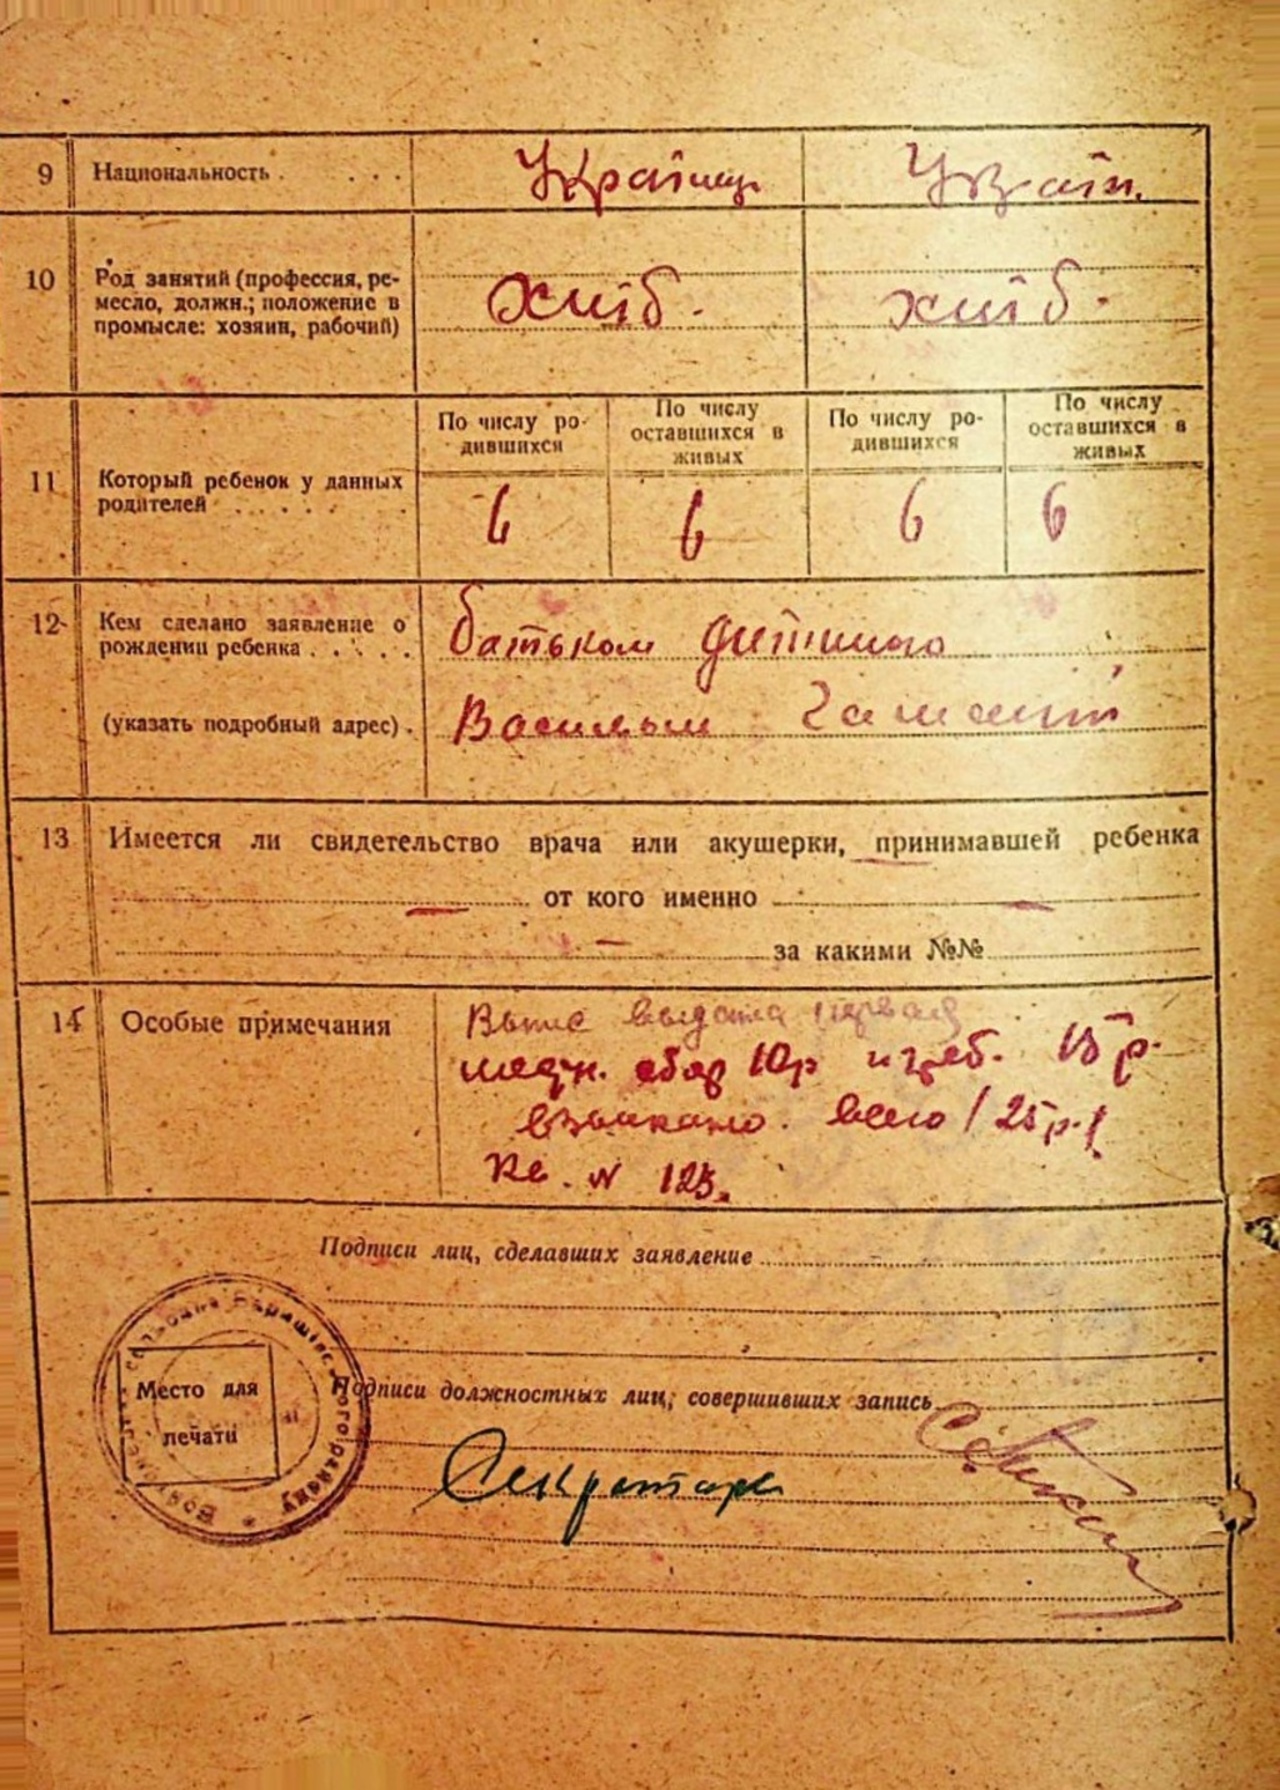 9 Национальность . . . . Українц. Україн.
10 Род занятий (профессия, ре-
месло, должн.; положение в
промысле: хозяин, рабочий)
хліб. хліб.
11 Который ребенок у данных
родителей . . . . . .
По числу ро-
дившихся
По числу
оставшихся в
живых
По числу ро-
дившихся
По числу
оставшихся в
живых
6 6 6 6
12 Кем сделано заявление о
рождении ребенка . . . . .
батьком
(указать подробный адрес) .
Васильом
13 Имеется ли свидетельство врача или акушерки, принимавшей ребенка
— от кого именно —
— за какими №№
14 Особые примечания
выдана первая
сбор 10р 15р.
взыкано. всего /25р./
Кв. N 125.
Подписи лиц, сделавших заявление
Место для
печати
Подписи должностных лиц, совершивших запись
Секретарь